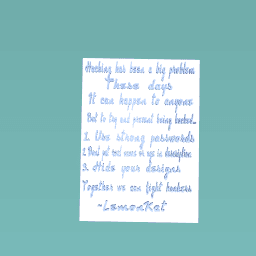 Hacking has been a big problem
These days
It can happen to anyone
But to try and prevent being hacked...
1. Use strong passwords
2. Dont put real name or age in description
3. Hide your designs
Together we can fight hackers
~LemonKat